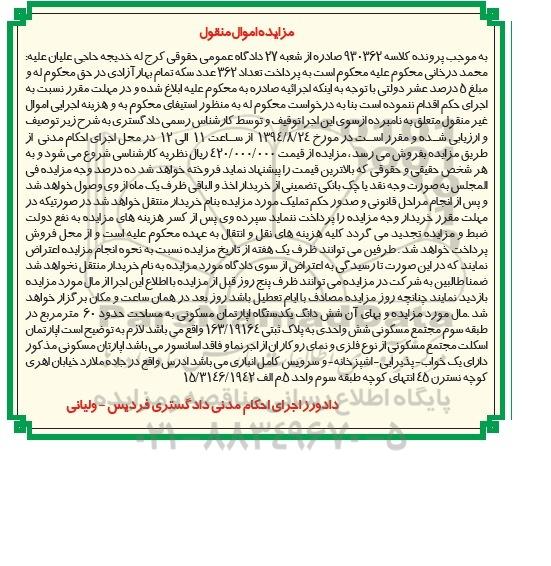 مزایده اموال منقول
به موجب پرونده کلاسه ۹۳۰۳۶۲ صادره از شعبه ۲۷ دادگاه عمومی حقوقی کرج له خدیجه حاجی علیان علیه:
محمد درخانی محکوم علیه محکوم است به پرداخت تعداد ۳۶۲ عدد سکه تمام بهار آزادی در حق محکوم له و
مبلغ ۵ درصد عشر دولتی با توجه به اینکه اجرائیه صادره به محکوم علیه ابلاغ شده و در مهلت مقرر نسبت به
اجرای حکم اقدام ننموده است بنا به درخواست محکوم له به منظور استیفای محکوم به و هزینه اجرایی اموال
غیر منقول متعلق به نامبرده ازسوی این اجرا توقیف و توسط کارشناس رسمی دادگستری به شرح زیر توصیف
و ارزیابی شده و مقرر است در مورخ ۱۳۹۴/۸/۲۴ از ساعت ۱۱ الی ۱۲ در محل اجرای احکام مدنی از
طریق مزایده بفروش می رسد . مزایده از قیمت ۴۲۰/۰۰۰/۰۰۰ ریال نظریه کارشناسی شروع می شود و به
هر شخص حقیقی و حقوقی که بالاترین قیمت را پیشنهاد نماید فروخته خواهد شد ده درصد وجه مزایده فی
المجلس به صورت وجه نقد یا چک بانکی تضمینی از خریدار اخذ و الباقی ظرف یک ماه از وی وصول خواهد شد
و پس از انجام مراحل قانونی و صدور حکم تملیک مورد مزایده بنام خریدار منتقل خواهد شد در صورتیکه در
مهلت مقرر خریدار وجه مزایده را پرداخت ننماید سپرده وی پس از کسر هزینه های مزایده به نفع دولت
ضبط و مزایده تجدید می گردد کلیه هزینه های نقل و انتقال به عهده محکوم علیه است و از محل فروش
پرداخت خواهد شد . طرفین می توانند ظرف یک هفته از تاریخ مزایده نسبت به نحوه انجام مزایده اعتراض
نمایند که در این صورت تا رسیدگی به اعتراض از سوی دادگاه مورد مزایده به نام خریدار منتقل نخواهد شد
ضمنا طالبین به شرکت در مزایده می توانند ظرف پنج روز قبل از مزایده با اطلاع این اجرا از مال مورد مزایده
بازدید نمایند چنانچه روز مزایده مصادف با ایام تعطیل باشد روز بعد در همان ساعت و مکان برگزار خواهد
شد .مال مورد مزایده و بهای آن شش دانگ یکدستگاه اپارتمان مسکونی به مساحت حدود ۶۰ مترمربع در
طبقه سوم مجتمع مسکونی شش واحدی به پلاک ثبتی ۱۶۳/۱۹۱۶۴ واقع می باشد لازم به توضیح است اپارتمان
اسکلت مجتمع مسکونی از نوع فلزی و نمای رو کاران از اجر نما و فاقد اسانسور می باشد اپارتان مسکونی مذکور
دارای یک خواب-پذیرایی-اشپزخانه-و سرویس کامل انباری می باشد ادرس واقع در جاده ملارد خیابان اهری
کوچه نسترن ۴۵ انتهای کوچه طبقه سوم واحد ۵ م الف ۱۵/۳۱۴۶/۱۹۴۲
دادورز اجرای احکام مدنی دادگستری فردیس - ولیانی
پایگاه اطلاع رسانی مناقصه و مزایده
۰۲۱-۸۸۳۴۹۶۷۰-۵